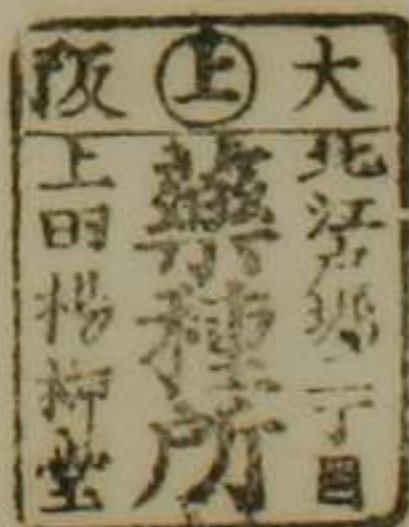 大㊤阪
北江戸堀二丁目
藥種所
上田楊柳堂